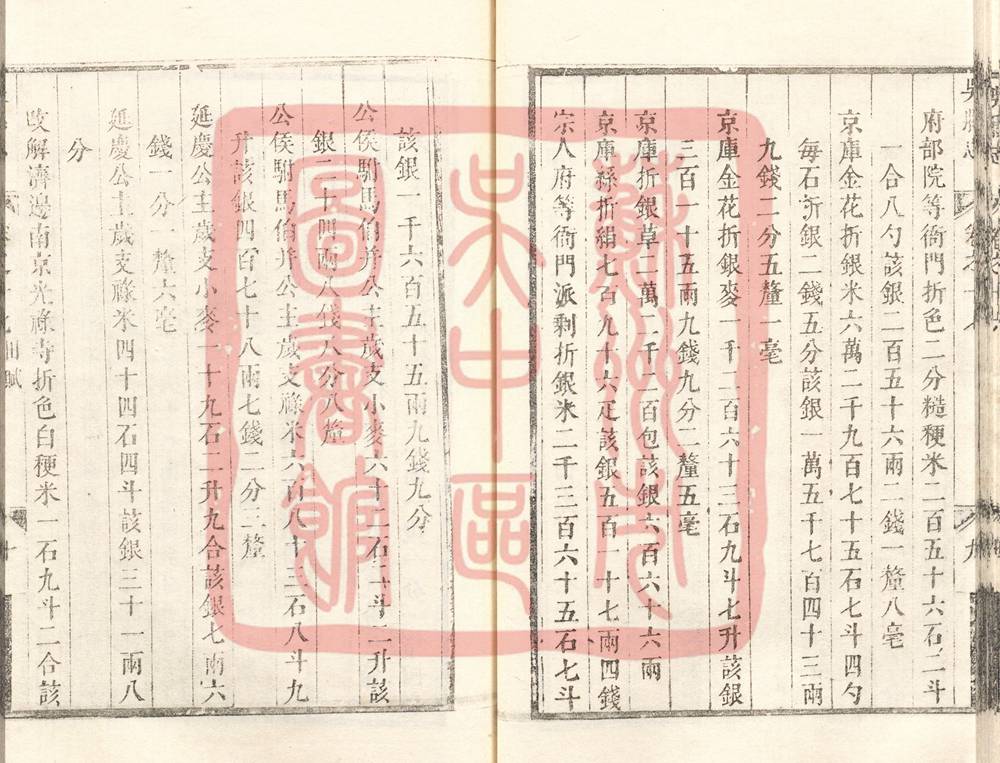 府部院等衙門折色二分糙粳米二百五十六石二斗
一合八勺該銀二百五十六兩二錢一釐八毫
京庫金花折銀米六萬二千九百七十五石七斗四勺
每石折銀二錢五分該銀一萬五千七百四十三兩
九錢二分五釐一毫
京庫金花折銀麥一千二百六十三石九斗七升該銀
三百一十五兩九錢九分二釐五毫
京庫折銀草二萬二千二百包該銀六百六十六兩
京庫絲折絹七百九十六疋該銀五百一十七兩四錢
宗人府等衙門派剩折銀米二千三百六十五石七斗
該銀一千六百五十五兩九錢九分
公侯駙馬伯并公主歲支小麥六十二石二斗二升該
銀二十四兩八錢八分八釐
公侯駙馬伯并公主歲支祿米六百八十三石八斗九
升該銀四百七十八兩七錢二分三釐
延慶公主歲支小麥一十九石二升九合該銀七兩六
錢一分一釐六毫
延慶公主歲支祿米四十四石四斗該銀三十一兩八
分
改解濟邊南京光祿寺折色白粳米一石九斗二合該
蘇州市
吳中區
圖書館